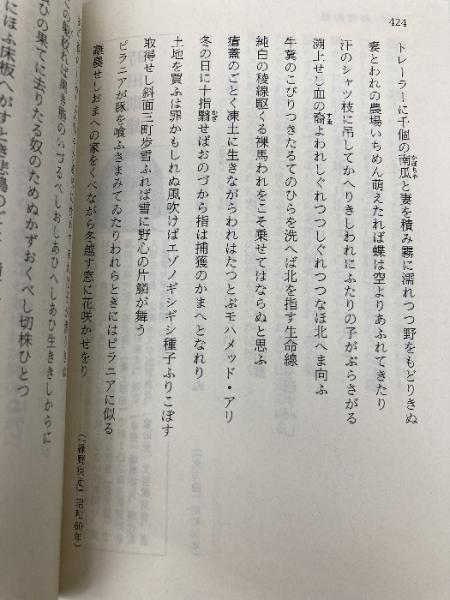 424
トレーラーに千個の南瓜と妻を積み霧に濡れつつ野をもどりきぬ
妻とわれの農場いちめん萌えたれば蝶は空よりあふれてきたり
汗のシャツ枝に吊してかへりきしわれにふたりの子がぶらさがる
溯上せし血の裔よわれしぐれつつしぐれつつなほ北へま向ふ
牛糞のこびりつきたるてのひらを洗へば北を指す生命線
純白の稜線駆くる裸馬われをこそ乗せてはならぬと思ふ
瘡蓋のごとく凍土に生きながらわれはたつとぶモハメッド・アリ
冬の日に十指翳せばおのづから指は捕獲のかまへとなれり
土地を買ふは罪かもしれぬ風吹けばエゾノギシギシ種子ふりこぼす
取得せし斜面三町歩雪ふれば雪に野心の片鱗が舞う
ピラニアが豚を喰ふさまみてゐたりわれらときにはピラニアに似る
離農せしおまへの家をくべながら冬越す窓に花咲かせをり
昭和60年)
ひの果てに去りたる奴のためぬかずおくべし切株ひとつ
にほふ床板へがすとき